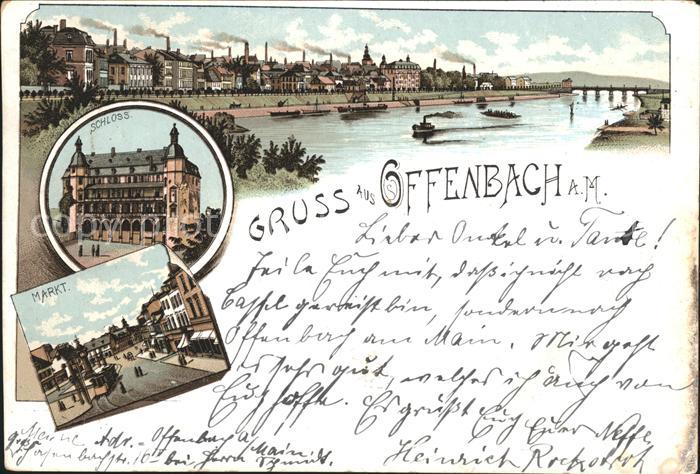 SCHLOSS.
MARKT.
GRUSS AUS OFFENBACH A.M.
Lieber Onkel u. Tante!
Teile Euch mit, daß ich nicht nach
Cassel gereist bin, sondern nach
Offenbach am Main. Mir geht
es sehr gut, welches ich auch von
Euch hoffe. Es grüßt Euch Euer Neffe
Heinrich
Meine Adr. Offenbach a/ Main
bei Herrn Schmidt.